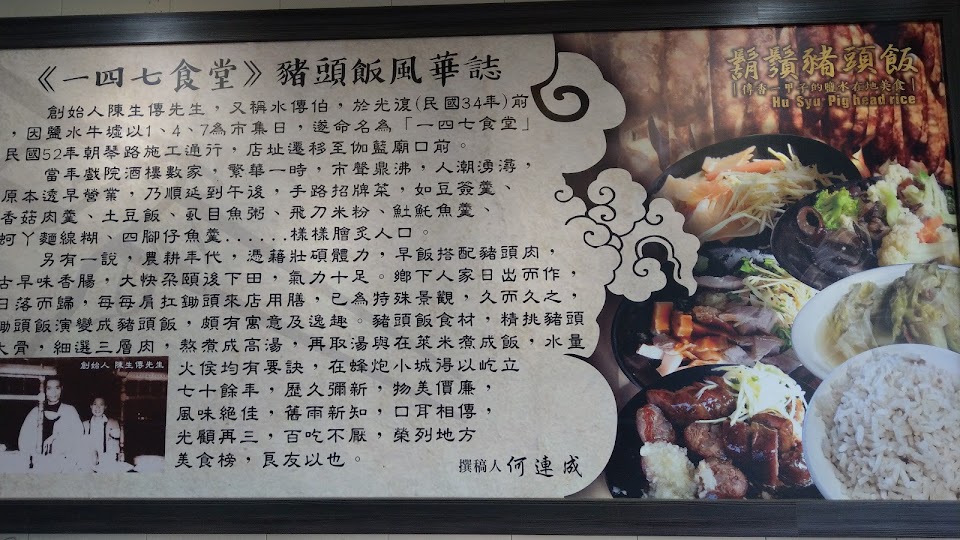 《一四七食堂》豬頭飯風華誌
創始人陳生傳先生，又稱水傳伯，於光復(民國34年)前
，因鹽水牛墟以1、4、7為市集日，遂命名為「一四七食堂」
民國52年朝琴路施工通行，店址遷移至伽藍廟口前。
當年戲院酒樓數家，繁華一時，市聲鼎沸，人潮湧潯，
原本透早營業，乃順延到午後，手路招牌菜，如豆簽羹、
香菇肉羹、土豆飯、虱目魚粥、飛刀米粉、魠魠魚羹、
蚵丫麵線糊、四腳仔魚羹......樣樣膾炙人口。
另有一說，農耕年代，憑藉壯碩體力，早飯搭配豬頭肉，
古早味香腸，大快朵頤後下田，氣力十足。鄉下人家日出而作，
日落而歸，每每肩扛鋤頭來店用膳，已為特殊景觀，久而久之，
鋤頭飯演變成豬頭飯，頗有寓意及逸趣。豬頭飯食材，精挑豬頭
大骨，細選三層肉，熬煮成高湯，再取湯與在萊米煮成飯，水量
火侯均有要訣，在蜂炮小城得以屹立
七十餘年，歷久彌新，物美價廉，
風味絕佳，舊雨新知，口耳相傳，
光顧再三，百吃不厭，榮列地方
美食榜，良友以也。
撰稿人何連成
創始人 陳生傳先生
鬍鬚豬頭飯
傳香一甲子的鹽水在地美食
Hu Syu Pig head rice